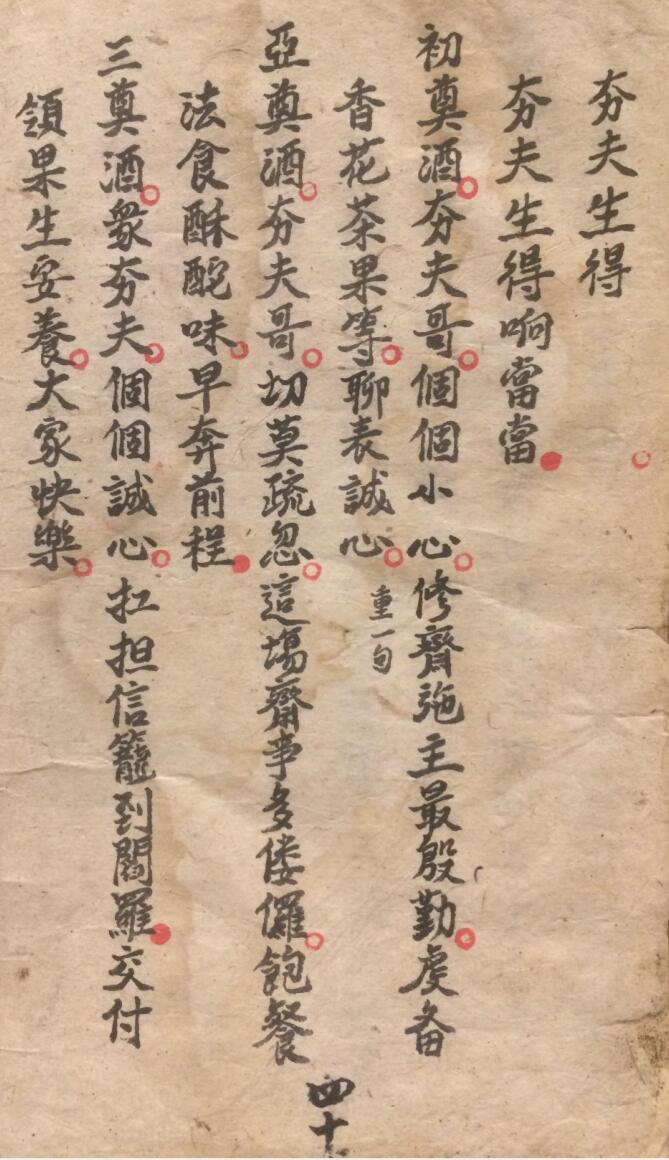 夯夫生得
夯夫生得响當當
初奠酒夯夫哥個個小心修齊施主最殷勤虔备
香花茶果等聊表誠心重一句
亞奠酒夯夫哥切莫疏忽這場齋事多偻儸飽餐
法食酥酡味早奔前程
三奠酒衆夯夫個個誠心扛担信籠到閻羅交付
領果生安養大家快樂
四十